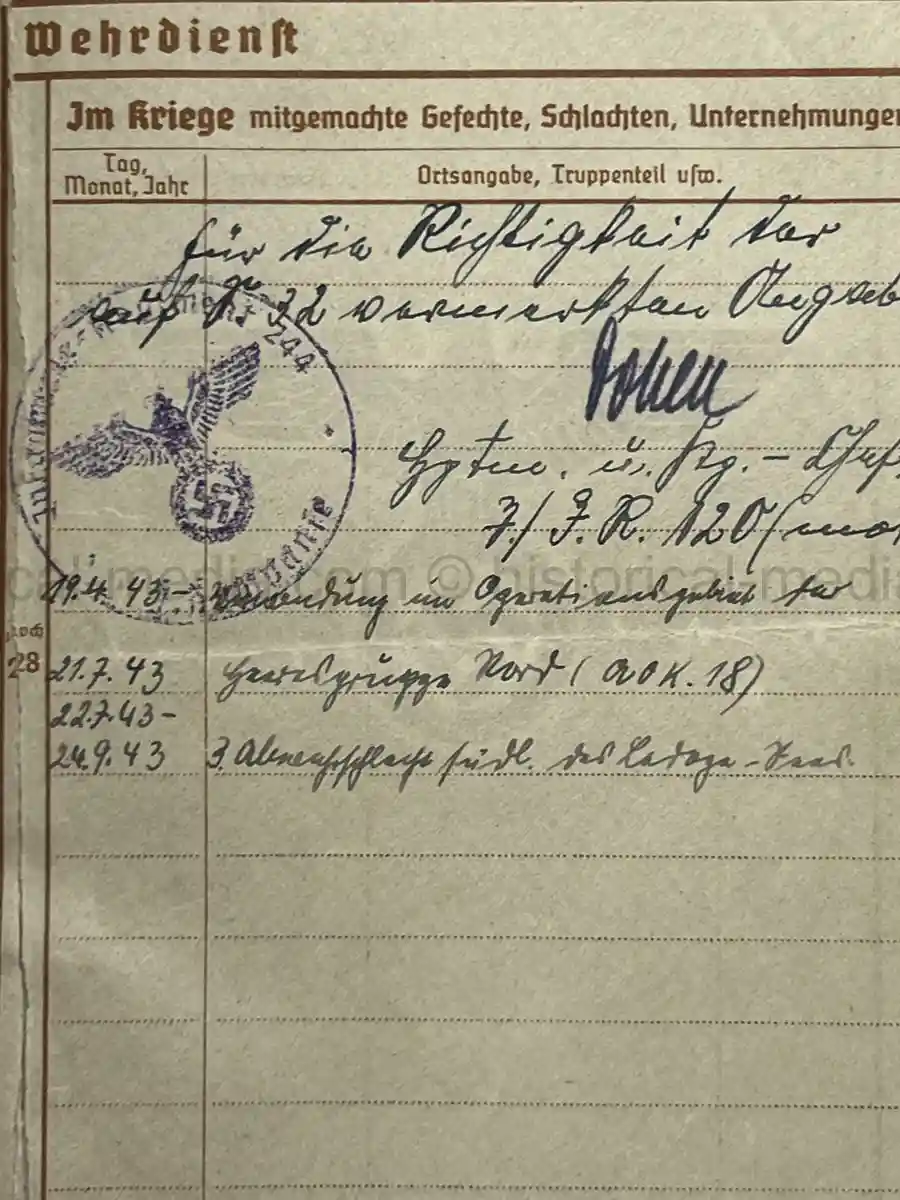 Wehrdienst
Im Kriege mitgemachte Gefechte, Schlachten, Unternehmungen
Tag,
Monat, Jahr
Ortsangabe, Truppenteil usw.
für die Richtigkeit der
auf S. 32 vermerkten Angab
244
Hptm. u. Kp. – Chef
7./ J. R. 120 (mo
cal-medi com © historical-medi
19.4.43 – Verwendung im Operationsgebiet der
noch
28
21.7.43 Heeresgruppe Nord (AOK. 18)
22.7.43 –
24.9.43 3. Abwehrschlacht südl. des Ladoga-Sees.